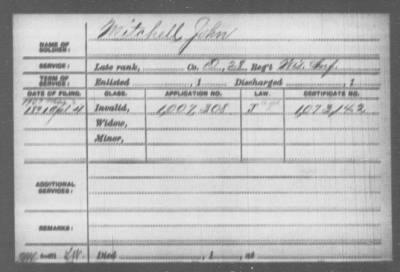 NAME OF SOLDIER: Mitchell John
SERVICE: Late rank, Co. D, 28 Reg't Wis. Inf.
TERM OF SERVICE: Enlisted , 1 Discharged , 1
DATE OF FILING. CLASS. APPLICATION NO. LAW. CERTIFICATE NO.
1891 Apl 4 Invalid, 1,007,308 J 1,073,142
Widow,
Minor,
ADDITIONAL SERVICES:
REMARKS:
Died , 1 , at